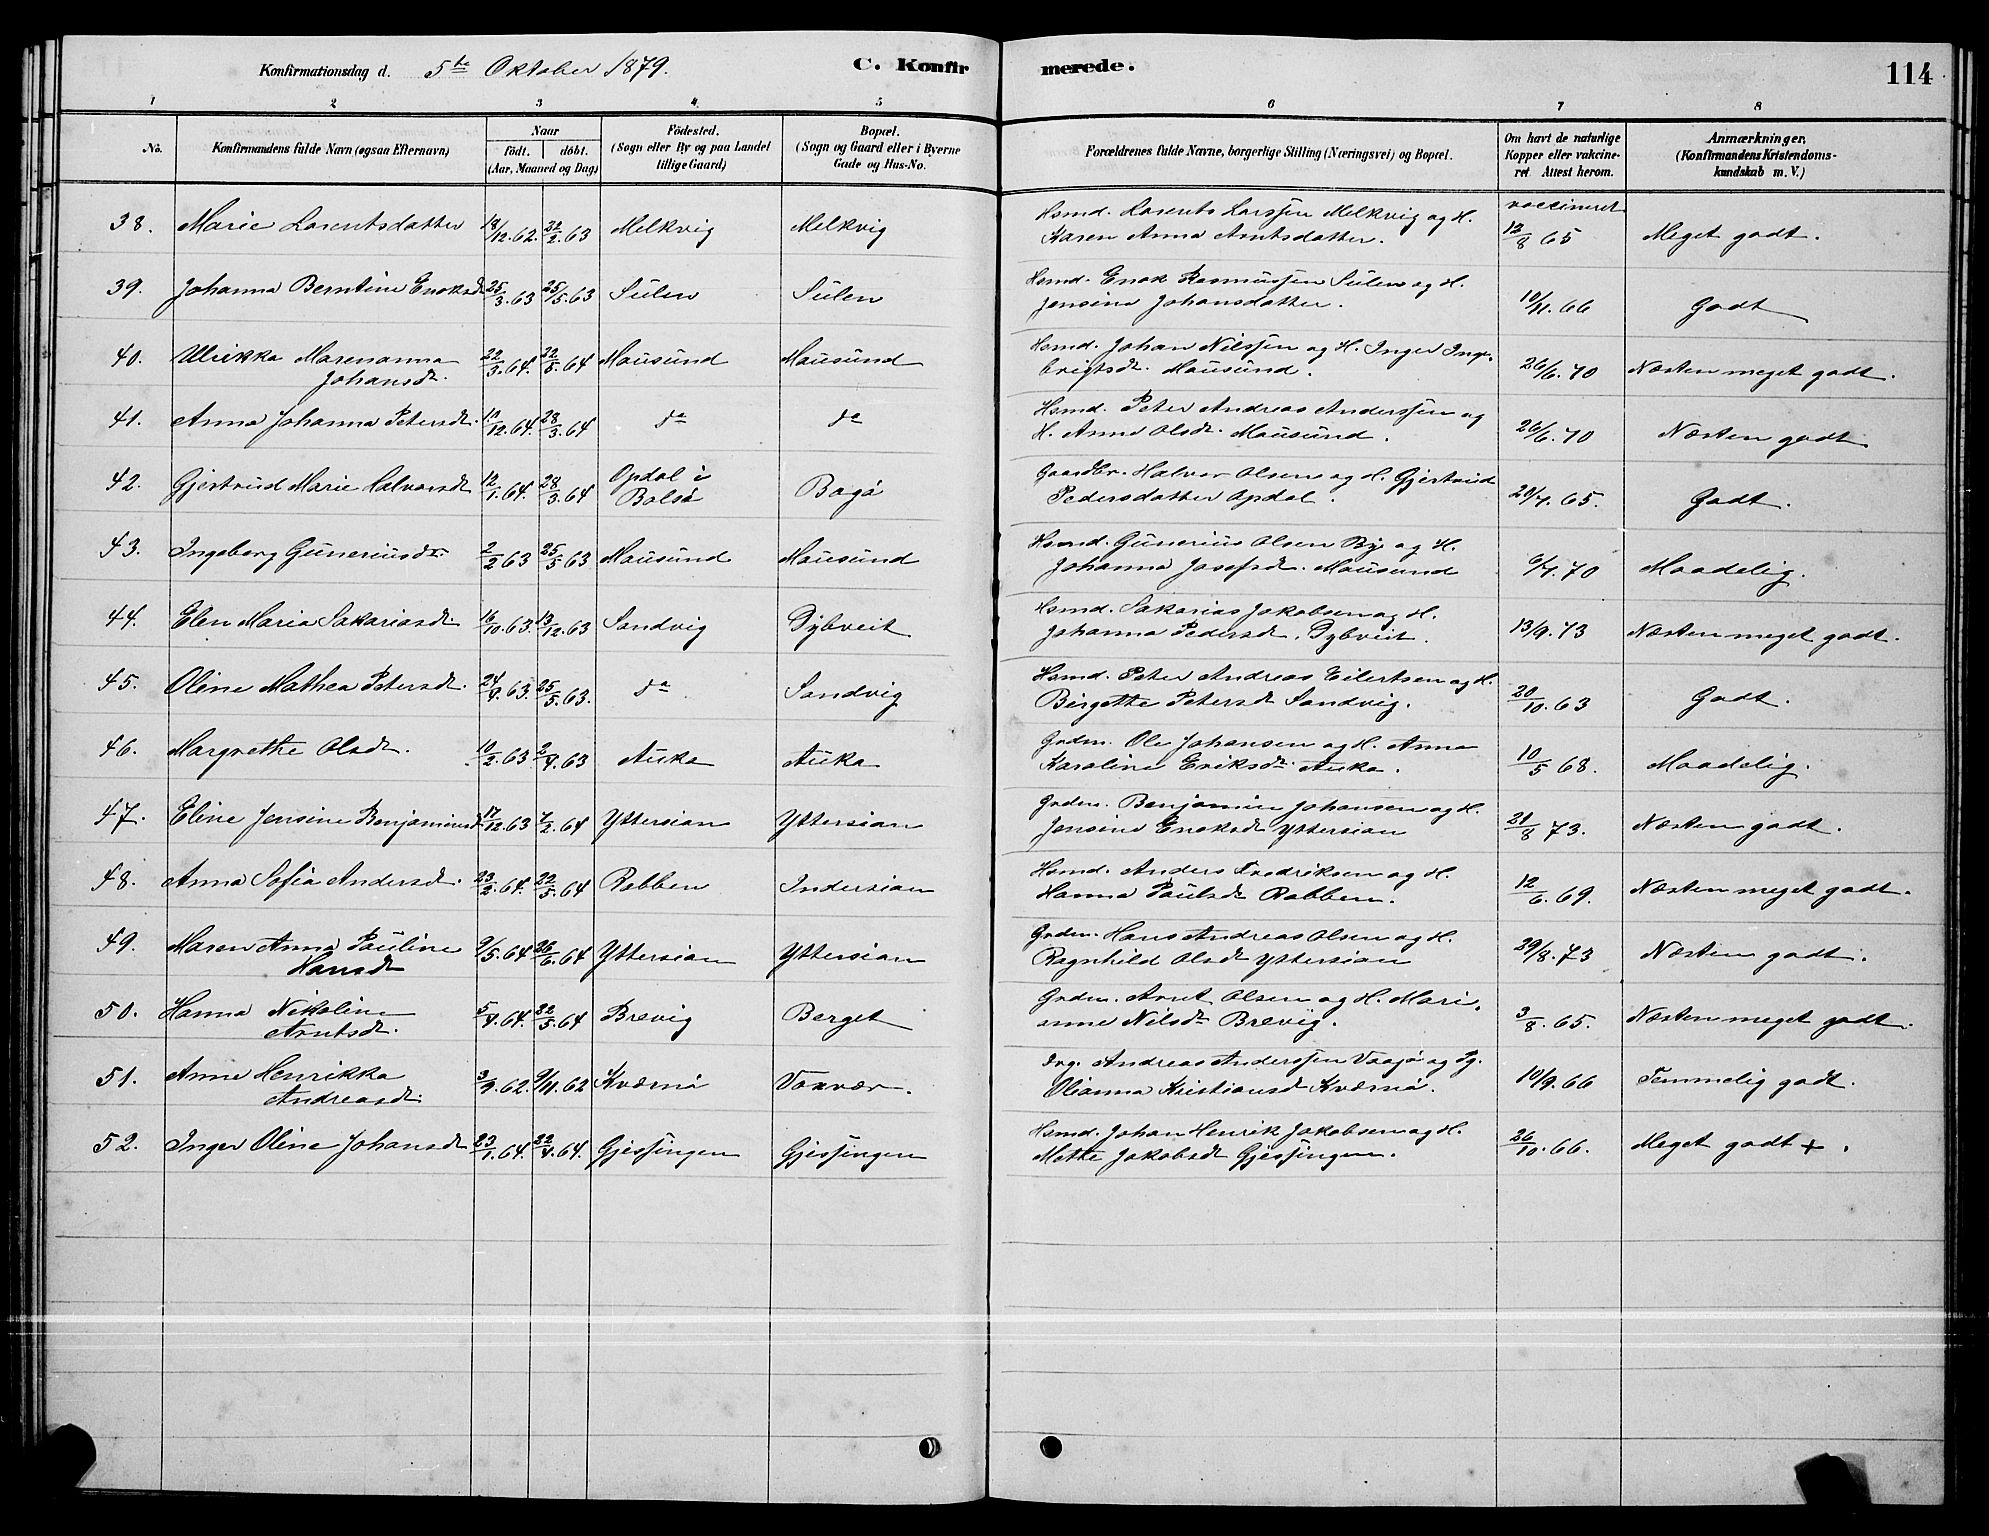 Konfirmationsdag d. 5te Oktober 1879. C. Konfirmerede. 114
1 2 3 4 5 6 7 8
No. Konfirmandens fulde Navn (ogsaa Efternavn) Naar født. døbt. (Aar, Maaned og Dag) Födested. (Sogn eller By og paa Landet tillige Gaard) Bopæl. (Sogn og Gaard eller i Byerne Gade og Hus-No. Forældrenes fulde Navne, borgerlige Stilling (Næringsvei) og Bopæl. Om havt de naturlige Kopper eller vakcineret Attest herom. Anmærkninger. (Konfirmandens Kristendomskundskab m. V.)
vaccineret
38. Marie Lorentsdatter 18/12.62. 22/2.63 Melkvig Melkvig Hsmd. Lorents Larssen Melkvig og H.
Karen Anna Arntsdatter. 12/8 65 Meget godt.
39. Johanna Berntine Enoksdt 25/3.63 25/5.63 Sulen Sulen Hsmd. Enok Rasmussen Sulen og H.
Jensine Johansdatter. 10/11.66 Godt
40. Ulrikka Marenanna 22/3.64. 22/5.64 Mausund Mausund Hsmd. Johan Nilssen og H. Inger Inge-
Johansdt. brigtsdt. Mausund. 26/6.70 Næsten meget godt.
41. Anna Johanna Petersdt. /12.64. 28/3.64 da da Hsmd. Peter Andreas Anderssen og
H. Anne Olsdt. Mausund. 26/6.70 Næsten godt
42. Gjertrud Marie Halvorsdt 12/1.64. 28/3.64 Opdal i Gaardbr. Halvor Olsen og H. Gjertrud
Bolsö Bogö Pedersdatter Opdal. 20/7.65. Godt.
43. Ingeborg Guneriusdt. 2/2 63 25/5.63 Mausund Mausund Hsmd. Gunerius Olsen Bye og H.
Johanna Josefsdt. Mausund /7.70 Maadelig.
44. Elen Maria Sakariasdt. 16/10.63. 13/12.63 Sandvig Dybveit Hsmd. Sakarias Jakobsen og H.
Johanna Pedersdt. Dybveit. 13/9.73 Næsten meget godt.
45. Oline Mathea Petersdt. 24/4.63. 25/5.63. da Sandvig Hsmd. Peter Andreas Eilertsen og H.
Birgette Petersdt Sandvig. 20/10.63 Godt.
46. Margrethe Olsdt. 10/2.63. 2/4.63 Auka Auka Grdm. Ole Johansen og H. Anna
Karoline Eriksdt. Auka. 10/5 68. Maadelig.
47. Eline Jensine Benjaminsdt 17/12.63 7/2.64 Yttersian Yttersian Grdm. Benjamin Johansen og H.
Jensine Enoksdt Yttersian 21/8 73. Næsten godt.
48. Anna Sofia Andersdt. 23/2.64. 22/5.64 Robben Indersian Hsmd. Anders Fredriksen og H.
Hanna Paulsdt Robben. 12/6.69. Næsten meget godt.
49. Maren Anna Pauline 9/5.64 26/6.64 Yttersian Yttersian Grdm. Hans Andreas Olsen og H.
Hansdt Ragnhild Olsdt Yttersian 29/8.73 Næsten godt.
50. Hanna Nikoline 5/4.64. 22/5.64 Brevig Berget Grdm. Arnt Olsen og H. Mari-
Arntsdt. anne Nilsdt Brevig. 3/8.65. Næsten meget godt.
51. Anne Henrikka 3/9.62. 9/11.62 Kværnö Vaxvær. Ivg. Andreas Anderssen Vaagö og Pg.
Andreasdt. Olianna Kristiansdt Kværnö. 10/9.66 Temmelig godt.
52. Inger Oline Johansdt 23/1.64. 22/4.64. Gjessingen Gjessingen Hsmd. Johan Henrik Jakobsen og H.
Mette Jakobsdt Gjessingen. 26/10.66. Meget godt +.